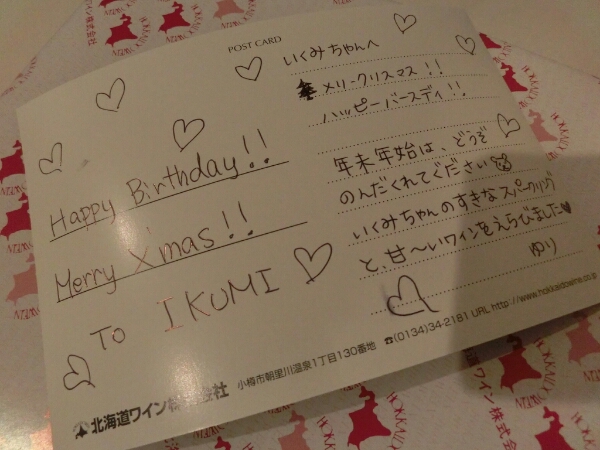 POST CARD
Happy Birthday!!
Merry X'mas!!
To IKUMI
いくみちゃんへ
メリークリスマス!!
ハッピーバースディ!!
年末年始は、どうぞ
のんだくれてください
いくみちゃんのすきなスパークリング
と、甘〜いワインをえらびました
ゆり
北海道ワイン株式会社 小樽市朝里川温泉1丁目130番地 ☎(0134)34-2181 URL http://www.hokkaidowine.co.jp
HOKKAIDO WINE
北海道ワイン株式会社